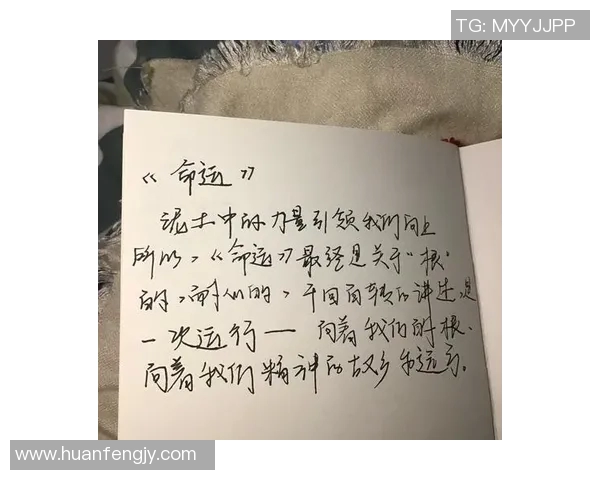 TG: MYYJJPP
《命运》
泥土中的力量引领我们向上
所以,《命运》最终是关于“根”
的,耐人的,千回百转的讲述,是
一次运行——向着我们的根、
向着我们精神的故乡的运行。
www.huanfengjy.com